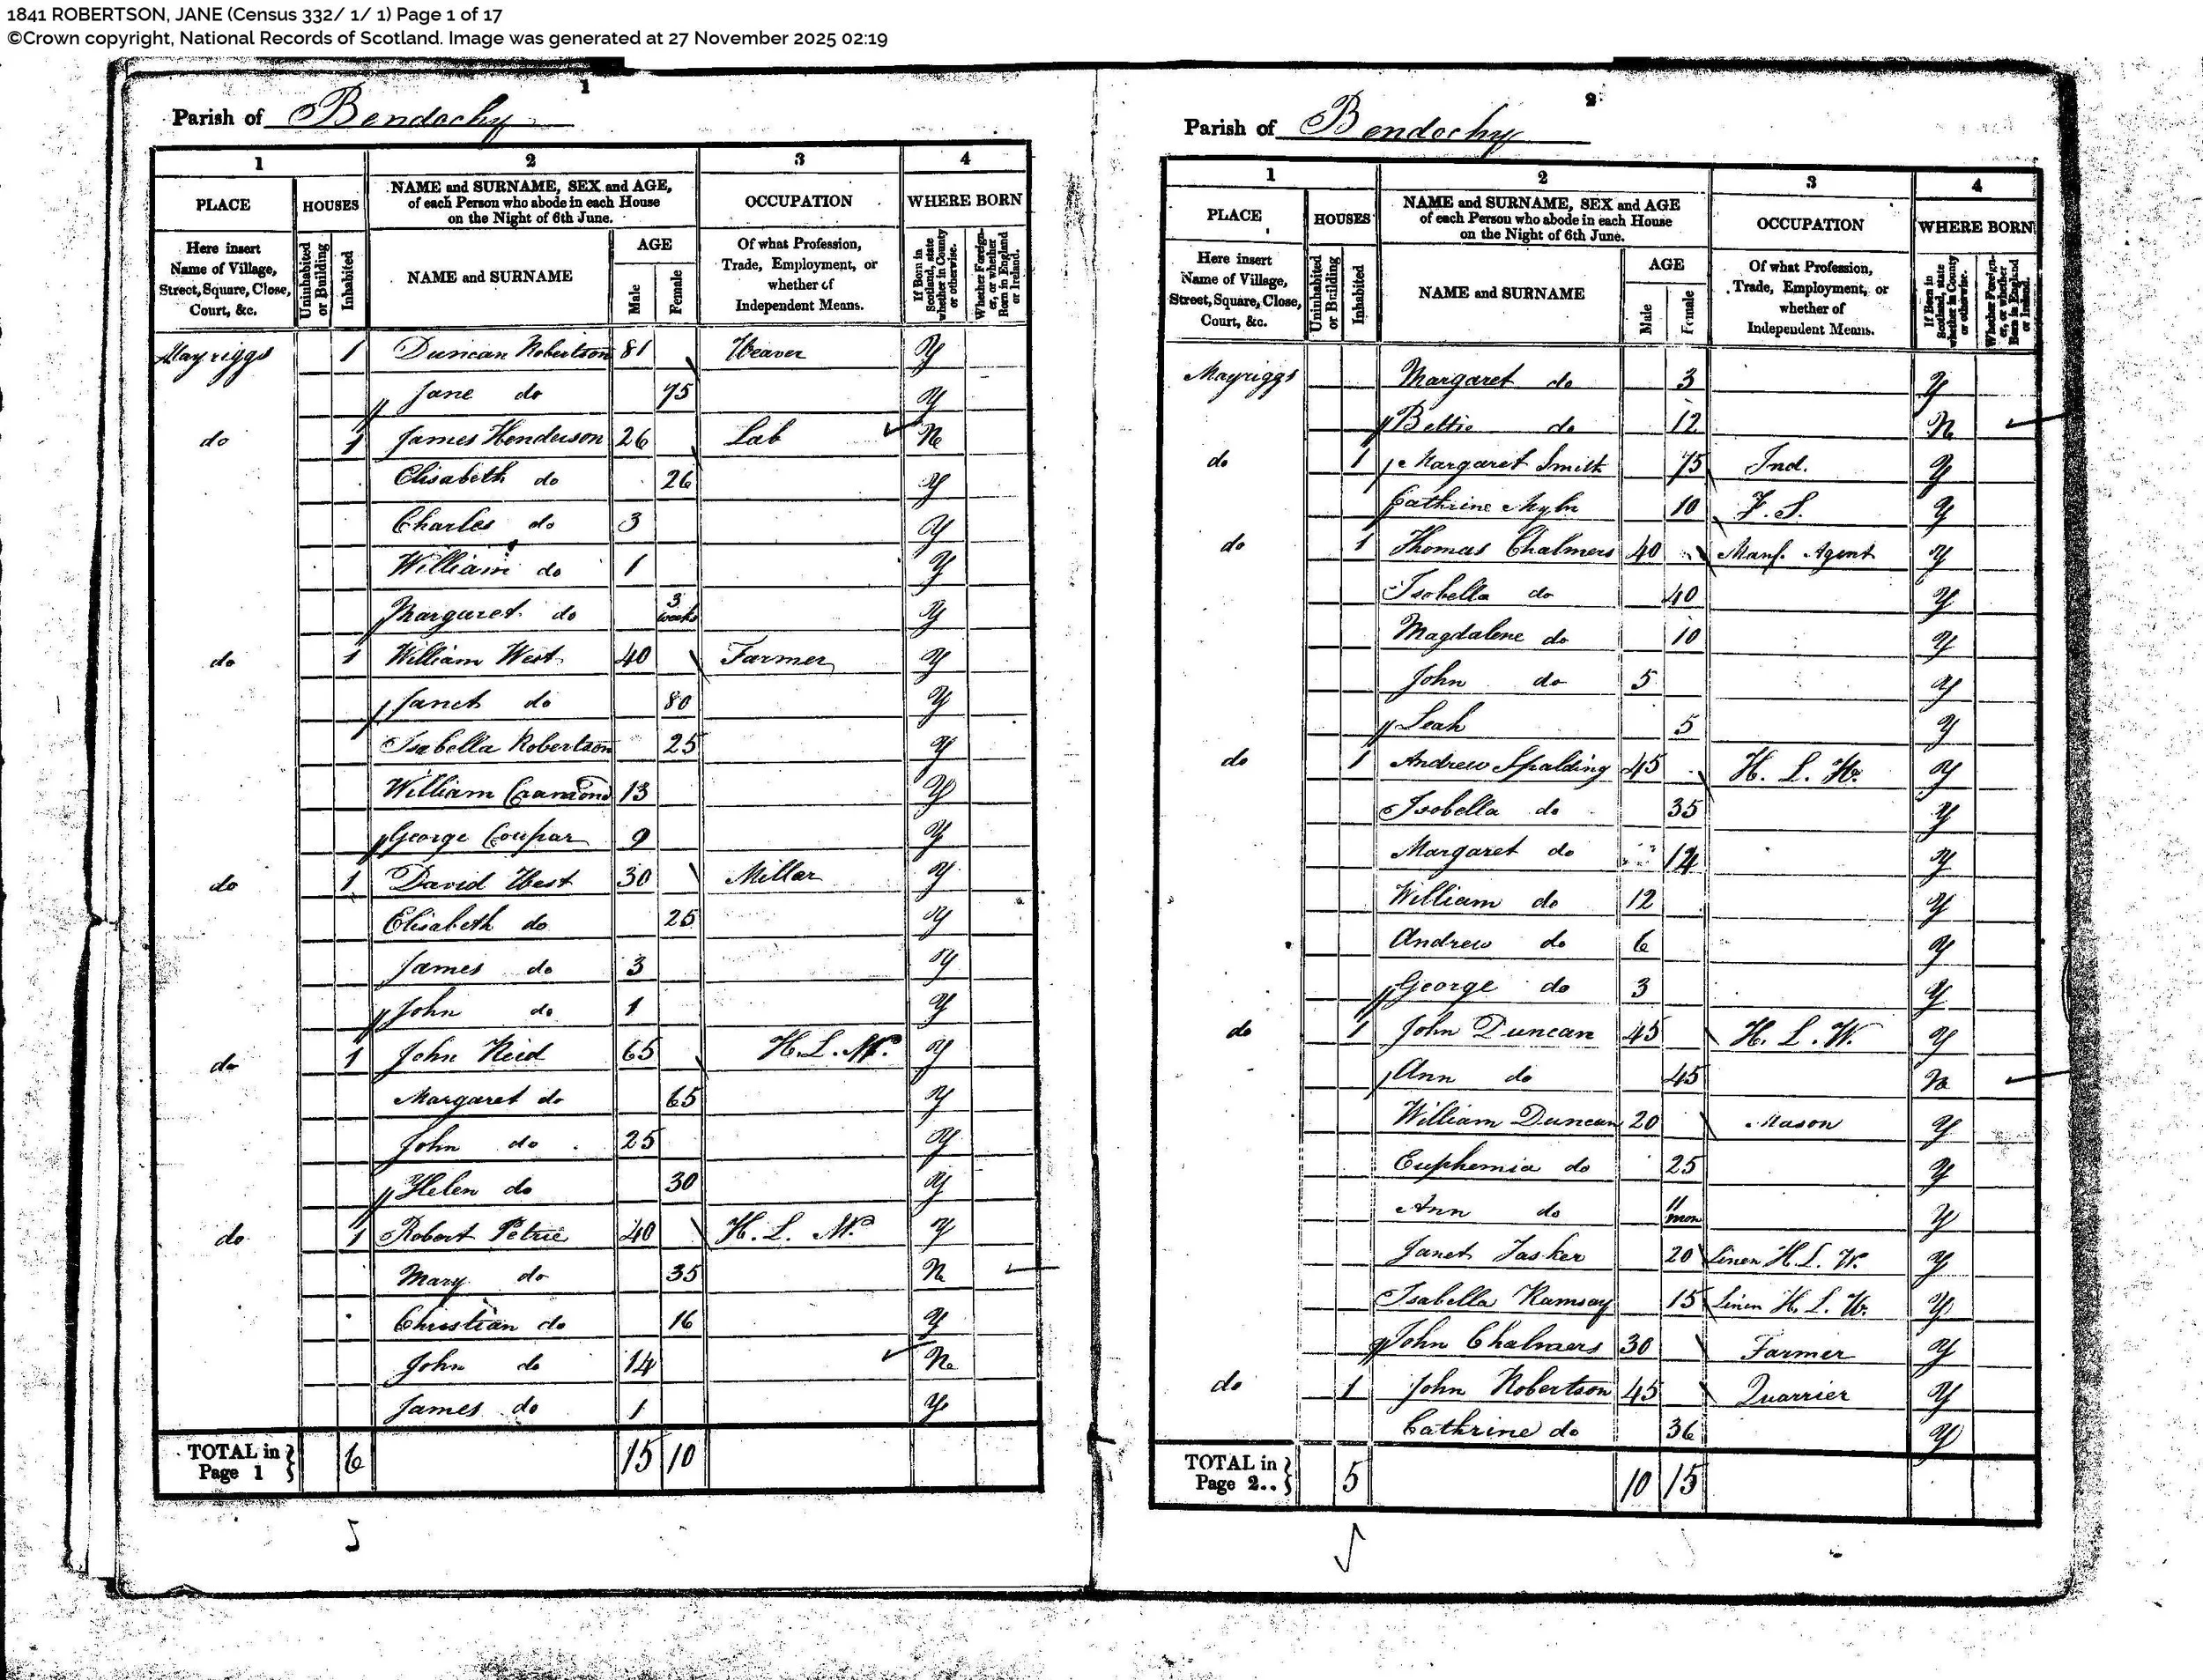 1841 ROBERTSON, JANE (Census 332/ 1/ 1) Page 1 of 17
©Crown copyright, National Records of Scotland. Image was generated at 27 November 2025 02:19
1
Parish of Bendochy
1 2 3 4
PLACE HOUSES NAME and SURNAME, SEX and AGE, of each Person who abode in each House on the Night of 6th June. OCCUPATION WHERE BORN
Here insert Name of Village, Street, Square, Close, Court, &c. Uninhabited or Building Inhabited NAME and SURNAME AGE Male Female Of what Profession, Trade, Employment, or whether of Independent Means. If Born in Scotland, state whether in County or otherwise. Whether Foreigner, or whether Born in England or Ireland.
Mayriggs 1 Duncan Robertson 81 Weaver Y
Jane do 75 Y
do 1 James Henderson 26 Lab N
Elisabeth do 26 Y
Charles do 3 Y
William do 1 Y
Margaret do 3 weeks Y
do 1 William West 40 Farmer Y
Janet do 80 Y
Isabella Robertson 25 Y
William Cramond 13 Y
George Coupar 9 Y
do 1 David West 30 Millar Y
Elisabeth do 25 Y
James do 3 Y
John do 1 Y
do 1 John Reid 65 H. L. W. Y
Margaret do 65 Y
John do 25 Y
Helen do 30 Y
do 1 Robert Petrie 40 H. L. W. Y
Mary do 35 N
Christian do 16 Y
John do 14 N
James do 1 Y
TOTAL in Page 1 6 15 10
2
Parish of Bendochy
1 2 3 4
PLACE HOUSES NAME and SURNAME, SEX and AGE of each Person who abode in each House on the Night of 6th June. OCCUPATION WHERE BORN
Here insert Name of Village, Street, Square, Close, Court, &c. Uninhabited or Building Inhabited NAME and SURNAME AGE Male Female Of what Profession, Trade, Employment, or whether of Independent Means. If Born in Scotland, state whether in County or otherwise. Whether Foreigner, or whether Born in England or Ireland.
Mayriggs Margaret do 3 Y
Bettie do 12 N
do 1 Margaret Smith 75 Ind. Y
Cathrine Myln 10 F. S. Y
do 1 Thomas Chalmers 40 Manf. Agent Y
Isobella do 40 Y
Magdalene do 10 Y
John do 5 Y
Leah 5 Y
do 1 Andrew Spalding 45 H. L. W. Y
Isobella do 35 Y
Margaret do 14 Y
William do 12 Y
Andrew do 6 Y
George do 3 Y
do 1 John Duncan 45 H. L. W. Y
Ann do 45 N
William Duncan 20 Mason Y
Euphemia do 25 Y
Ann do 11 mon Y
Janet Tasker 20 Linen H. L. W. Y
Isabella Ramsay 15 Linen H. L. W. Y
John Chalmers 30 Farmer Y
do 1 John Robertson 45 Quarrier Y
Cathrine do 36 Y
TOTAL in Page 2.. 5 10 15